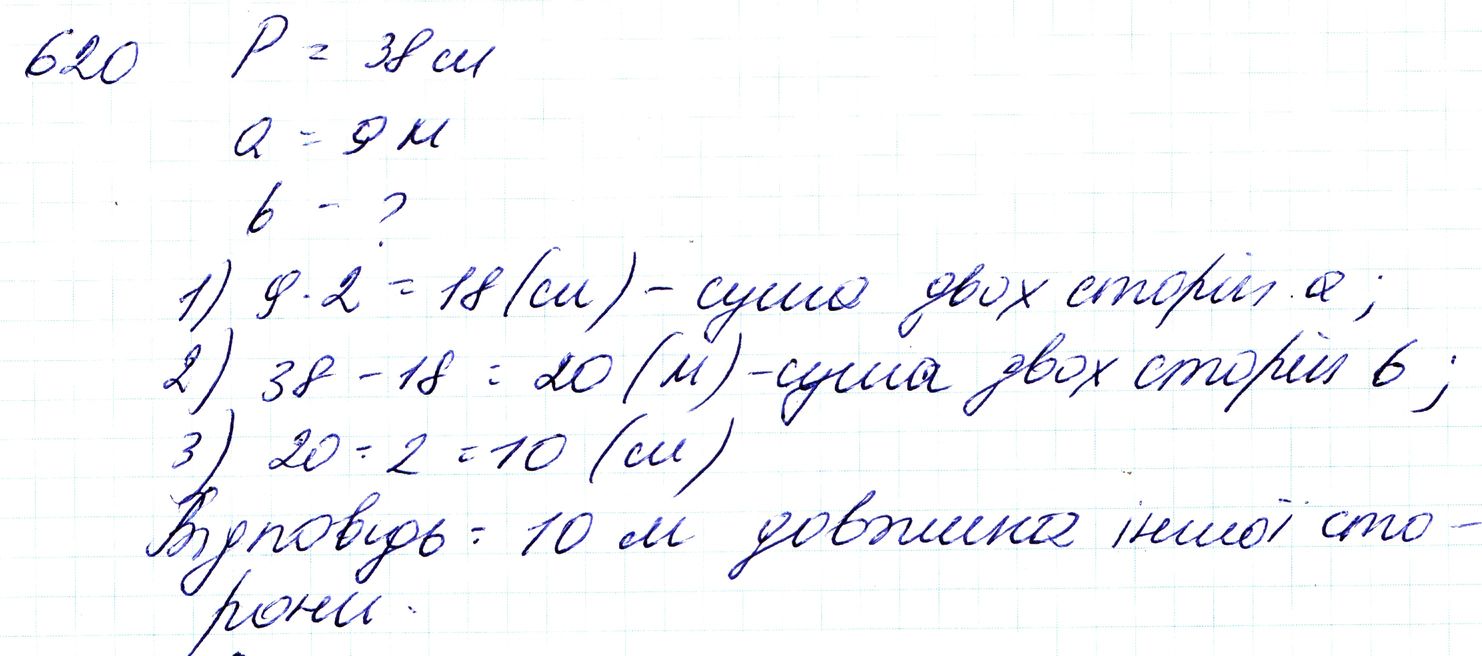 620 P = 38 см
a = 9 м
b - ?
1) 9 · 2 = 18 (см) - сума двох сторін a;
2) 38 - 18 = 20 (м) - сума двох сторін b;
3) 20 : 2 = 10 (см)
Відповідь: 10 м довжина іншої сто-
рони.